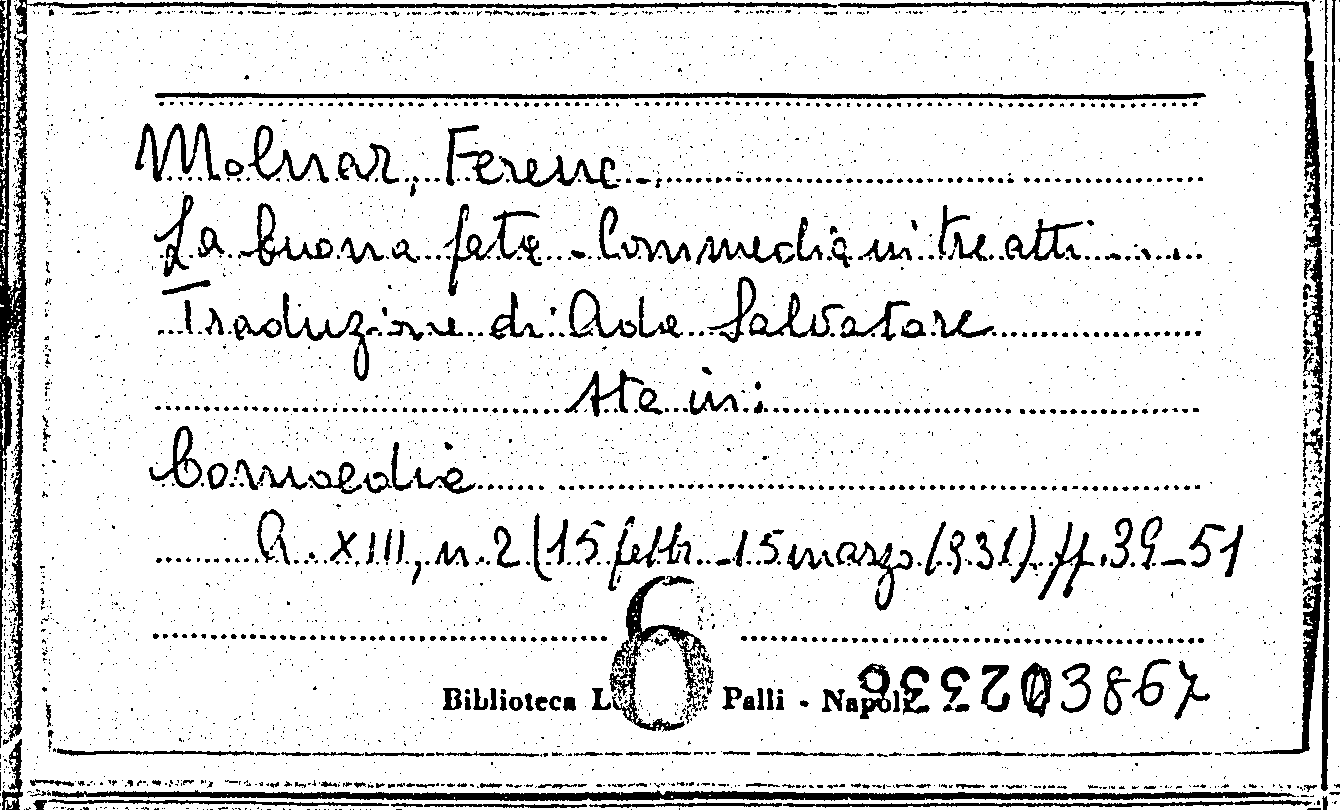 Molnar, Ferenc.
La buona fata - Commedia in tre atti
Traduzione di Ada Salvatore
Sta in:
Comoedia
A. XIII, n. 2 (15 febbr. - 15 marzo 1931) ff. 39-51
6
Biblioteca Palli - Napoli
03867